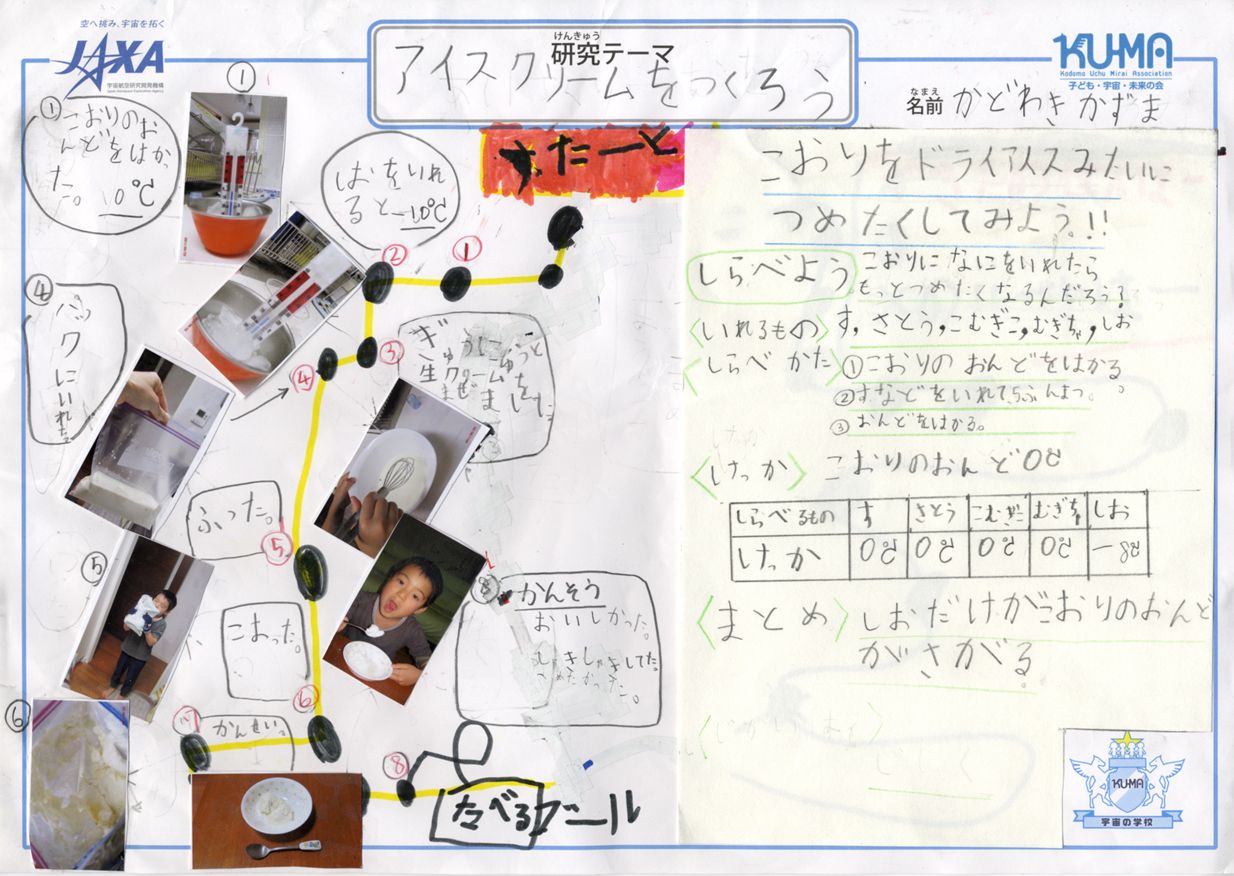 空へ挑み、宇宙を拓く
JAXA
宇宙航空研究開発機構
Japan Aerospace Exploration Agency
けんきゅう
研究テーマ
アイスクリームをつくろう
KU-MA
Kodomo Uchu Mirai Association
子ども・宇宙・未来の会
なまえ
名前 かどわき かずま
①
①
こおりのお
んどをはかっ
た。10℃
しおをいれ
ると-10℃
すたーと
②
①
③
④
④
パックにいれた
ふった。
⑤
⑤
こおった。
⑥
⑥
⑦
かんせい。
⑧
たべるゴール
⑧
かんそう
おいしかった。
しゃきしゃきしてた。
つめたかった。
こおりをドライアイスみたいに
つめたくしてみよう。!!
しらべよう
こおりになにをいれたら
もっとつめたくなるんだろう?
〈いれるもの〉す,さとう,こむぎこ,むぎちゃ,しお
〈しらべかた〉①こおりのおんどをはかる。
②すなどをいれて5ふんまつ。
③おんどをはかる。
〈けっか〉こおりのおんど0℃
しらべるもの す さとう こむぎこ むぎちゃ しお
けっか 0℃ 0℃ 0℃ 0℃ -8℃
〈まとめ〉しおだけがこおりのおんど
がさがる。
KUMA
宇宙の学校